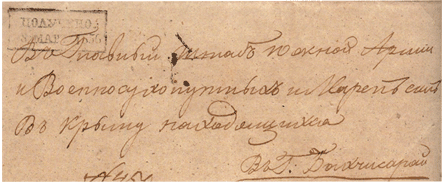 ПОЛУЧЕНО
Въ Главный Штабъ Южной Арміи
и Военносухопутныхъ и Морскихъ силъ
Въ Крыму находящихся
Въ Г. Бахчисарай